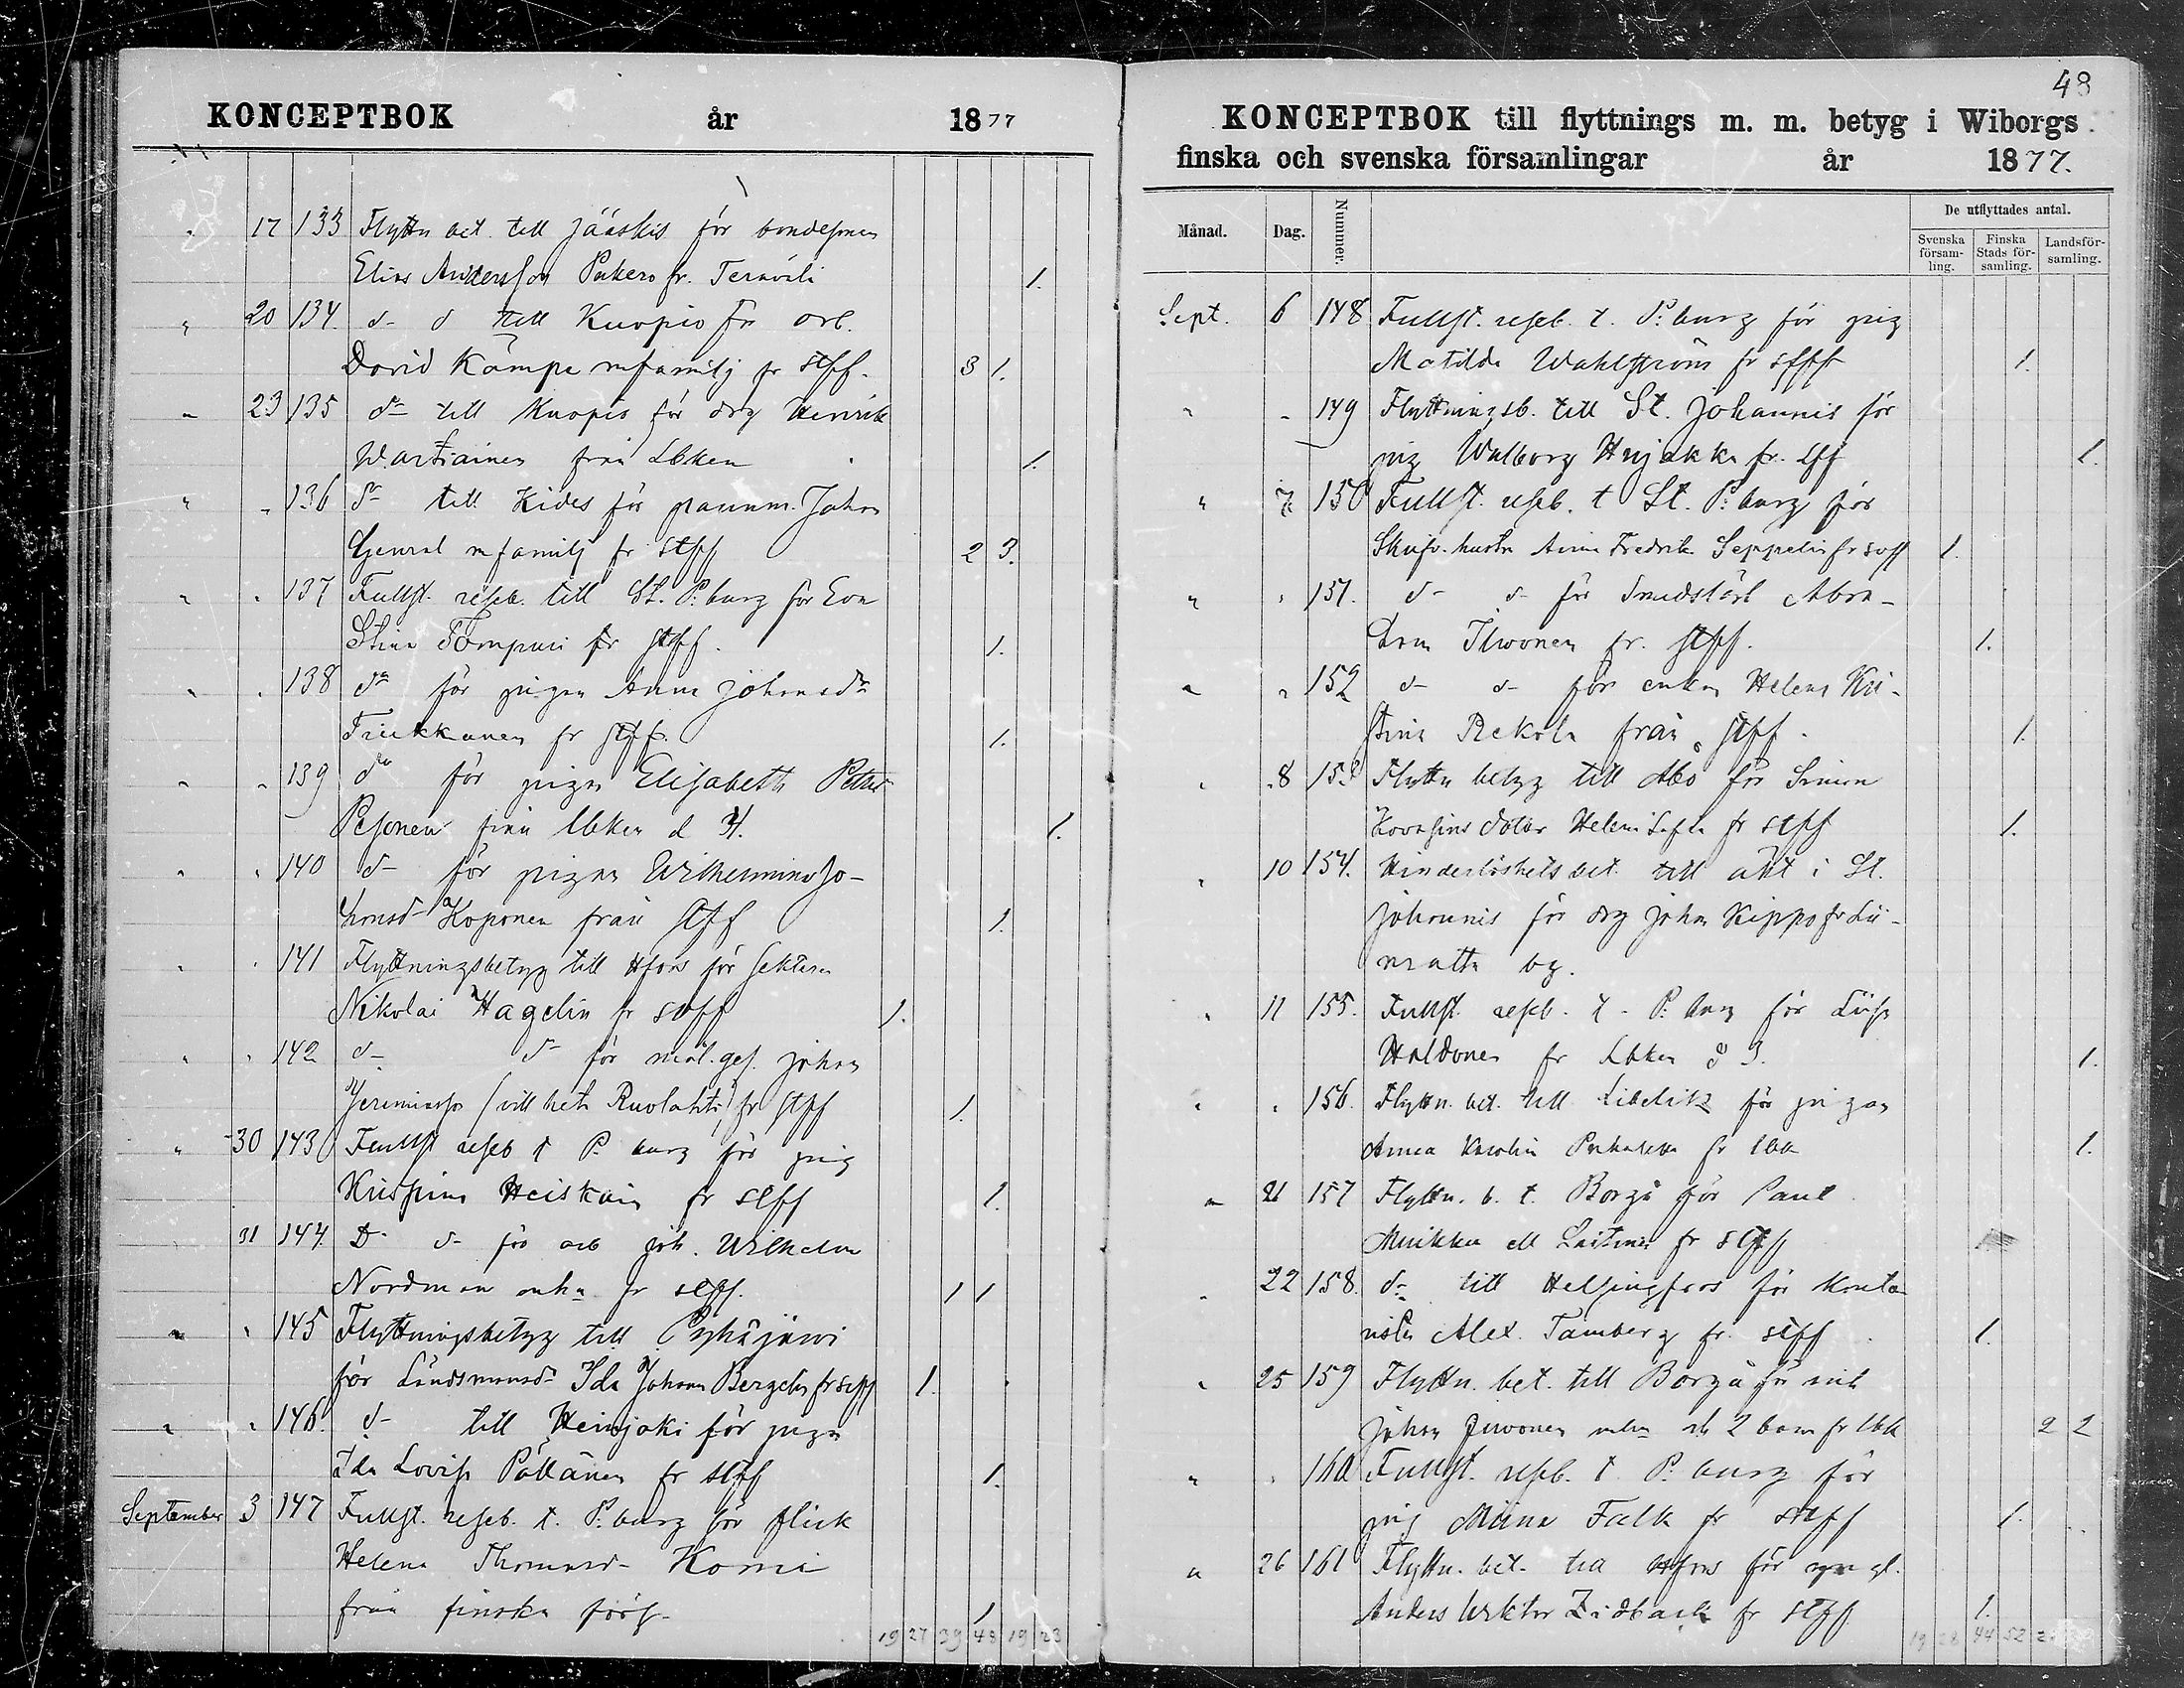 KONCEPTBOK år 1877
17 133 Flyttn bet. till Jääskis för bondesonen
Elias Andersson Pukero fr. Terävälä 1.
" 20 134. d- d till Kuopio för arb.
David Kämpe m familj fr stff. 3 1.
" 23 135 d- till Kuopio för drg Henrik
Wartiainen från Lbken 1.
" " 136 d- till Kides för Johan
m familj fr stff 2 3.
" " 137 Fullst. reseb. till St. P:burg för Eva
Stina Tompuri fr stff. 1.
" " 138 d- för pigan Anna Johansdr
Tiukkanen fr stff. 1.
" " 139 do för pigan Elisabeth Petersd
Pesonen från lbken d 31. 1.
" " 140 d- för pigan Wilhelmina Jo-
hansd- Koponen från stff 1.
" " 141 Flyttningsbetyg till Hfors för
Nikolai Hagelin fr svff 1.
" " 142 d- d- för mål.ges. Johan
Jeremiasson (vill heta Ruolahti) fr stff 1.
" 30 143 Fullst reseb t P. burg för pig
Kristina Heiskain fr stff 1.
31 144. D- d- för arb Joh. Wilhelm
Nordman fr stff. 1 1
" " 145 Flyttningsbetyg till Pyhäjärvi
för Ländsmansd- Ida Johanna Bergelin fr svff 1.
" " 146. d- till Heinjoki för pigan
Ida Lovisa Pöllänen fr stff 1.
September 3 147 Fullst. reseb. t. P:burg för flick
Helena Thomasd- Komi
från finska förs- 1
19 27 39 48 19 23
48
KONCEPTBOK till flyttnings m. m. betyg i Wiborgs
finska och svenska församlingar år 1877.
Månad. Dag. Nummer. De utflyttades antal.
Svenska församling. Finska Stads församling. Landsförsamling.
Sept. 6 148 Fullst. reseb. t. P:burg för pig
Matilda Wahlström fr stff 1.
" - 149 Flyttningsb. till St. Johannis för
pig Walborg Hujakka fr. lff 1.
" 7 150 Fullst. reseb. t St. P:burg för
hustru Anna Fredrik Seppelin fr svff 1.
" " 151. d- d- för Smedslärl Abra-
ham Ilwonen fr. stff. 1.
" " 152 d- d- för enkan Helena Kri-
stina Rekola från stff. 1.
" 8 153 Flyttn betyg till Åbo för Simon
dotter Helena Sofia fr stff 1.
" 10 154. Hinderlöshets bet. till äkt i St.
Johannis för drg Johan Kippo fr Lii-
matta by.
" 11 155. Fullst reseb. t- P:burg för Liisa
Haldonen fr Lbken d 3. 1.
" " 156. Flyttn. bet. till Libelitz för pigan
Anna Karolin fr lbk 1.
" 21 157 Flyttn. b. t. Borgå för Paul
Muikku ell Laitinen fr stff
" 22 158. d- till Helsingfors för
Alex. Tamberg fr. stff 1.
" 25 159 Flyttn. bet. till Borgå för
Johan m 2 barn fr lbk 2 2
" " 160 Fullst. reseb. t. P:burg för
pig Miina Falk fr stff 1.
" 26 161 Flyttn. bet. till Hfors för
Anders Wiktor Zidbäck fr stff 1.
19 28 44 52